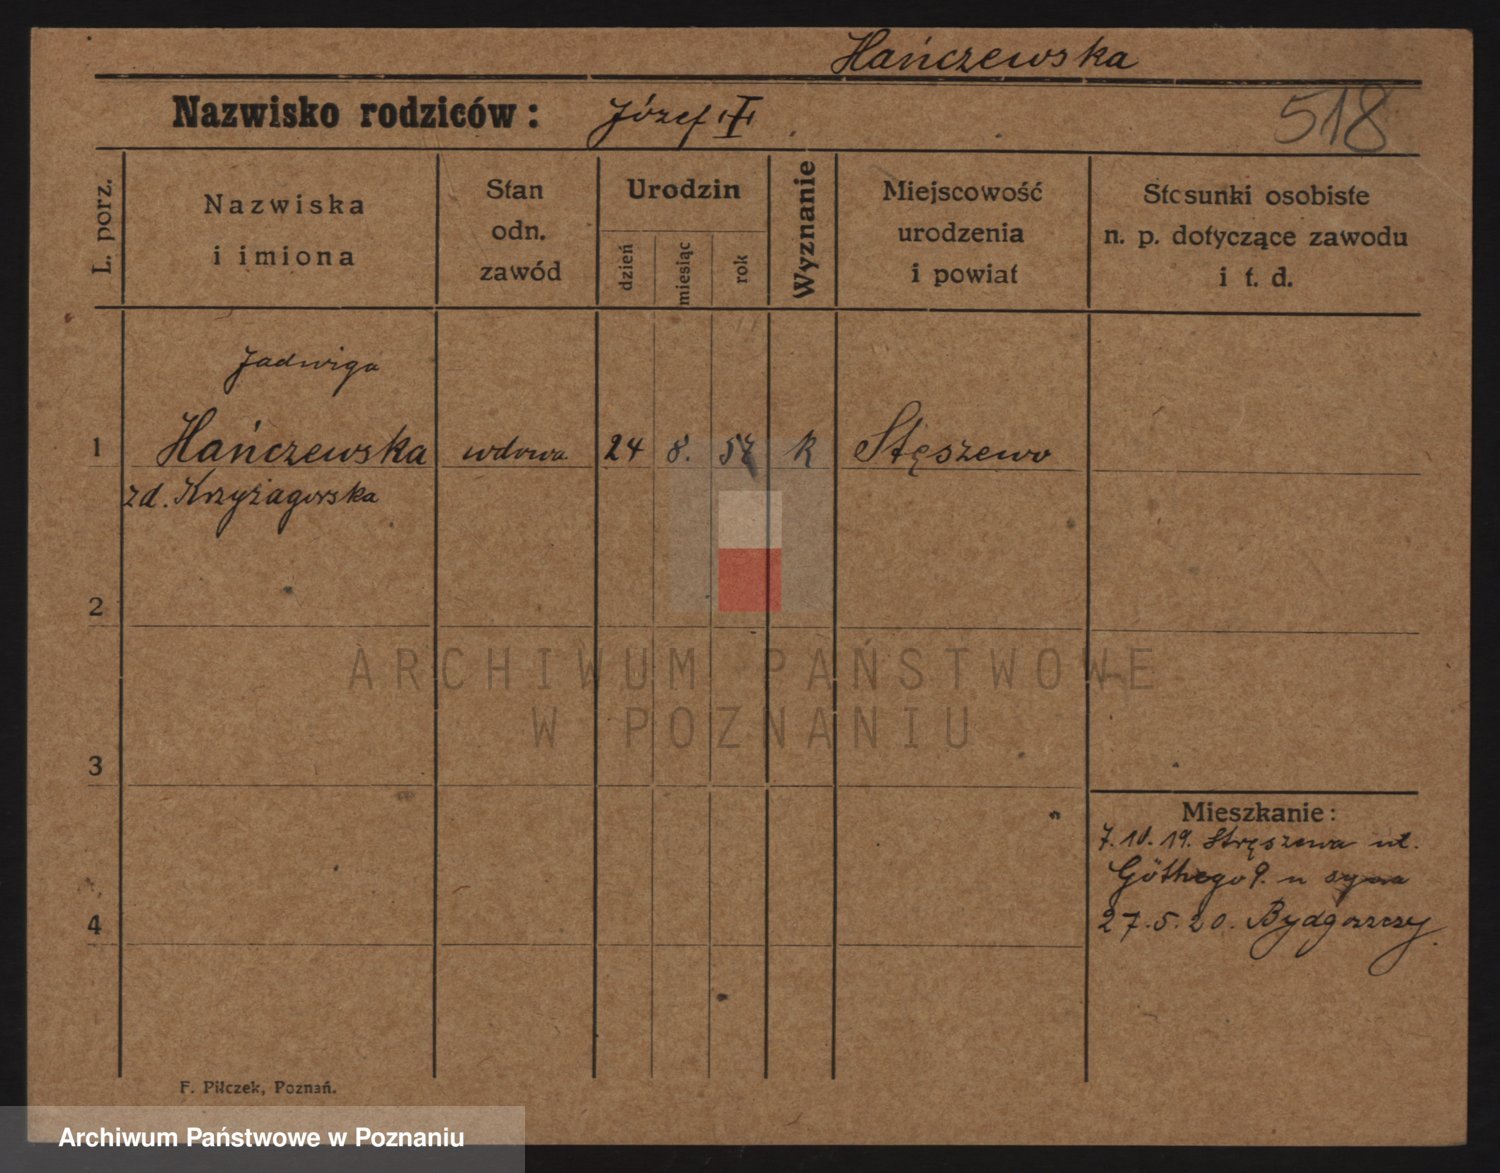 Hańczewska
Nazwisko rodziców: Józef I
518
L. porz.
Nazwiska
i imiona
Stan
odn.
zawód
Urodzin
dzień
miesiąc
rok
Wyznanie
Miejscowość
urodzenia
i powiat
Stosunki osobiste
n. p. dotyczące zawodu
i t. d.
Jadwiga
1 Hańczewska wdowa 24 8. 57 k Stęszewo
zd. Krzyżagorska
2
3
4
Mieszkanie:
7.10.19. Stręszewa ul.
Göthego 9. u syna
27.5.20. Bydgoszczy.
F. Pilczek, Poznań.
ARCHIWUM PAŃSTWOWE
W POZNANIU
Archiwum Państwowe w Poznaniu